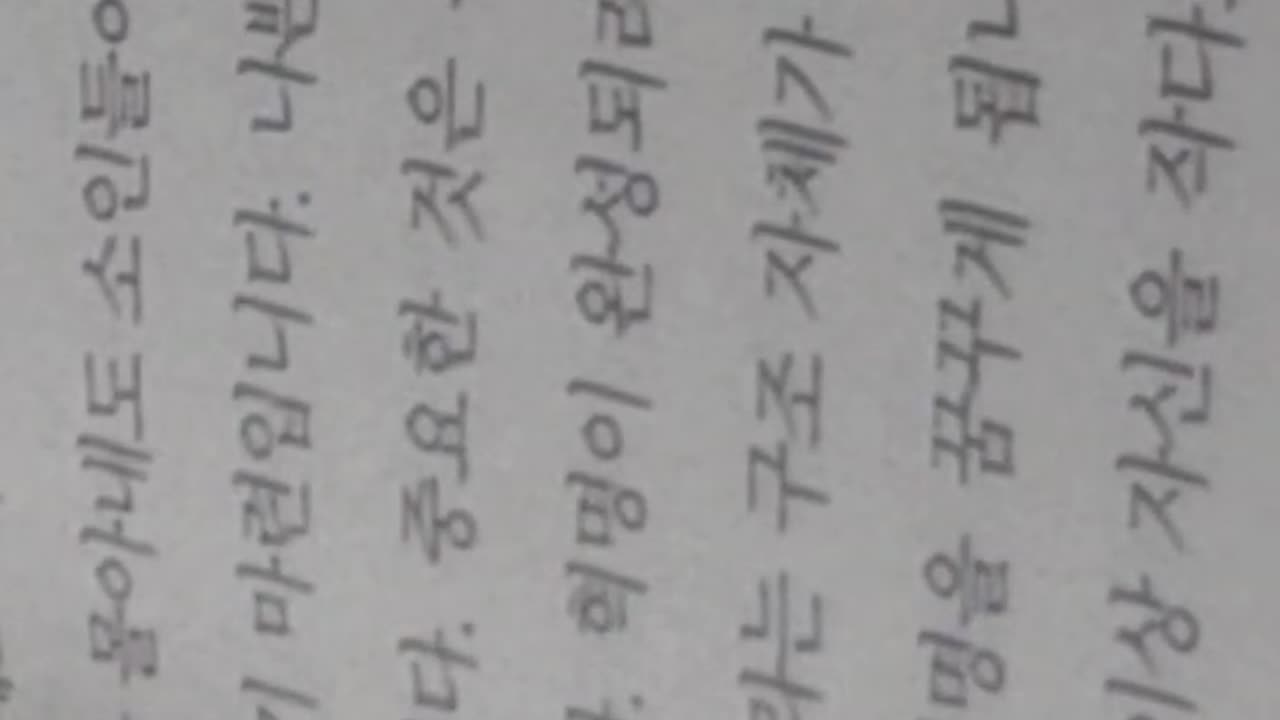 몰아내도 소인들
마련입니다. 나쁜
다. 중요한 것은
혁명이 완성되
라는 구조 자체가
명을 꿈꾸게 됩니
이상 자신을 작다.